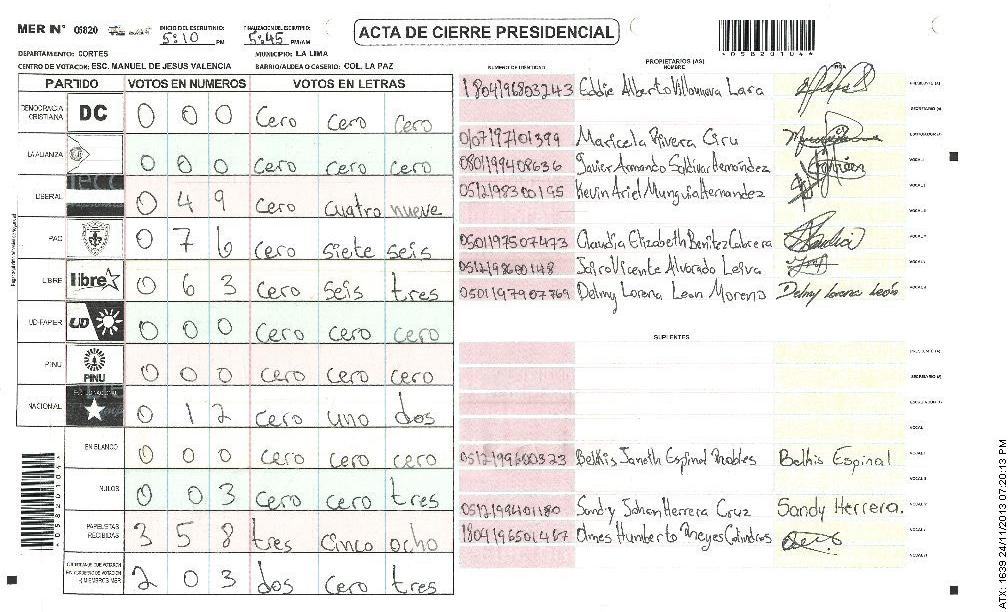 MER Nº 05820 INICIO DEL ESCRUTINIO: 5:10 PM FINALIZACION ESCRUTINIO: 5:45 PM/AM
ACTA DE CIERRE PRESIDENCIAL
*058201044*
DEPARTAMENTO: CORTES MUNICIPIO: LA LIMA
CENTRO DE VOTACION: ESC. MANUEL DE JESUS VALENCIA BARRIO/ALDEA O CASERIO: COL. LA PAZ
PARTIDO VOTOS EN NUMEROS VOTOS EN LETRAS
DEMOCRACIA CRISTIANA DC 0 0 0 Cero Cero Cero
LA ALIANZA 0 0 0 Cero Cero Cero
LIBERAL 0 4 9 Cero cuatro nueve
PAC 0 7 6 Cero siete seis
LIBRE libre 0 6 3 Cero seis tres
UD-FAPER UD 0 0 0 Cero cero cero
PINU PINU 0 0 0 cero cero cero
NACIONAL 0 1 2 cero uno dos
EN BLANCO 0 0 0 cero cero cero
NULOS 0 0 3 cero cero tres
PAPELETAS RECIBIDAS 3 5 8 tres cinco ocho
CIUDADANOS QUE VOTARON EN CUADERNO DE VOTACION + MIEMBROS MER 2 0 3 dos cero tres
PROPIETARIOS (AS)
NUMERO DE IDENTIDAD NOMBRE FIRMA
1804196803243 Eddie Alberto Villanueva Lara PRESIDENTE (A)
SECRETARIO (A)
0107197101399 Maricela Rivera ESCRUTADOR (A)
0801199408636 Javier Armando Hernández VOCAL I
0512198300195 Kevin Ariel Munguia Hernandez VOCAL II
VOCAL III
0501197507473 Claudia Elizabeth Benitez Cabrera VOCAL IV
0512198600148 Jairo Vicente Alvarado Leiva VOCAL V
0501197907769 Delmy Lorena Leon Moreno Delmy Lorena León VOCAL VI
SUPLENTES
PRESIDENTE (A)
SECRETARIO (A)
ESCRUTADOR (A)
VOCAL I
0512199600323 Belkis Janeth Espinal Robles Belkis Espinal VOCAL II
VOCAL III
0512199401180 Sandy Johan Herrera Cruz Sandy Herrera. VOCAL IV
1804196501467 Olmes Humberto Reyes VOCAL V
VOCAL VI
*058201044*
ATX: 1639 24/11/2013 07:20:13 PM